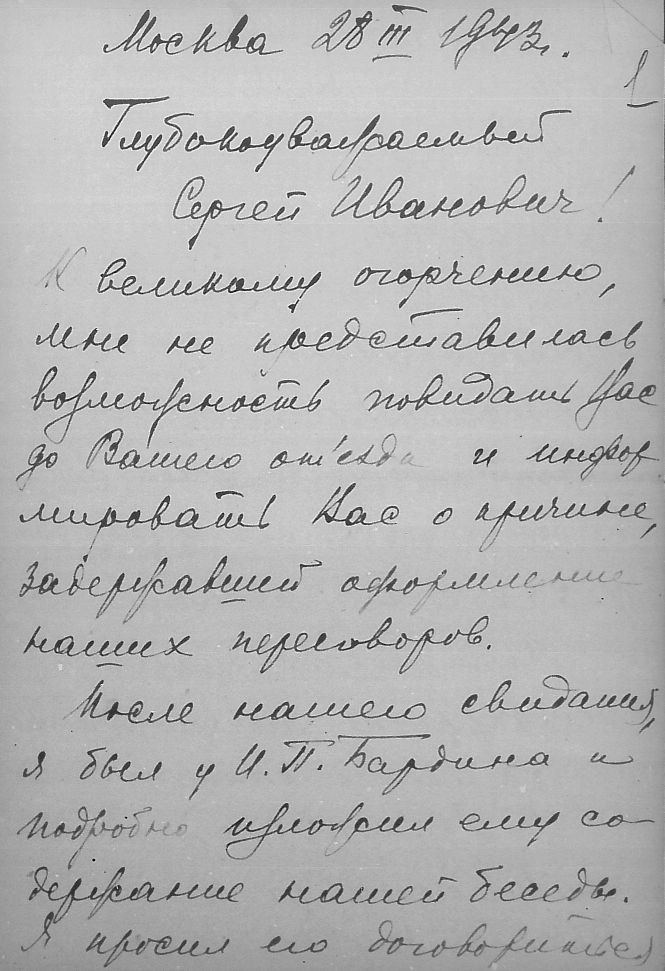 Москва 28 III 1943 г.
1
Глубокоуважаемый
Сергей Иванович!
К великому огорчению,
мне не представилась
возможность повидать Вас
до Вашего от'езда и инфор
мировать Вас о причине,
задержавшей оформление
наших переговоров.
После нашего свидания,
я был у И. П. Бардина и
подробно изложил ему со
держание нашей беседы.
Я просил его договориться